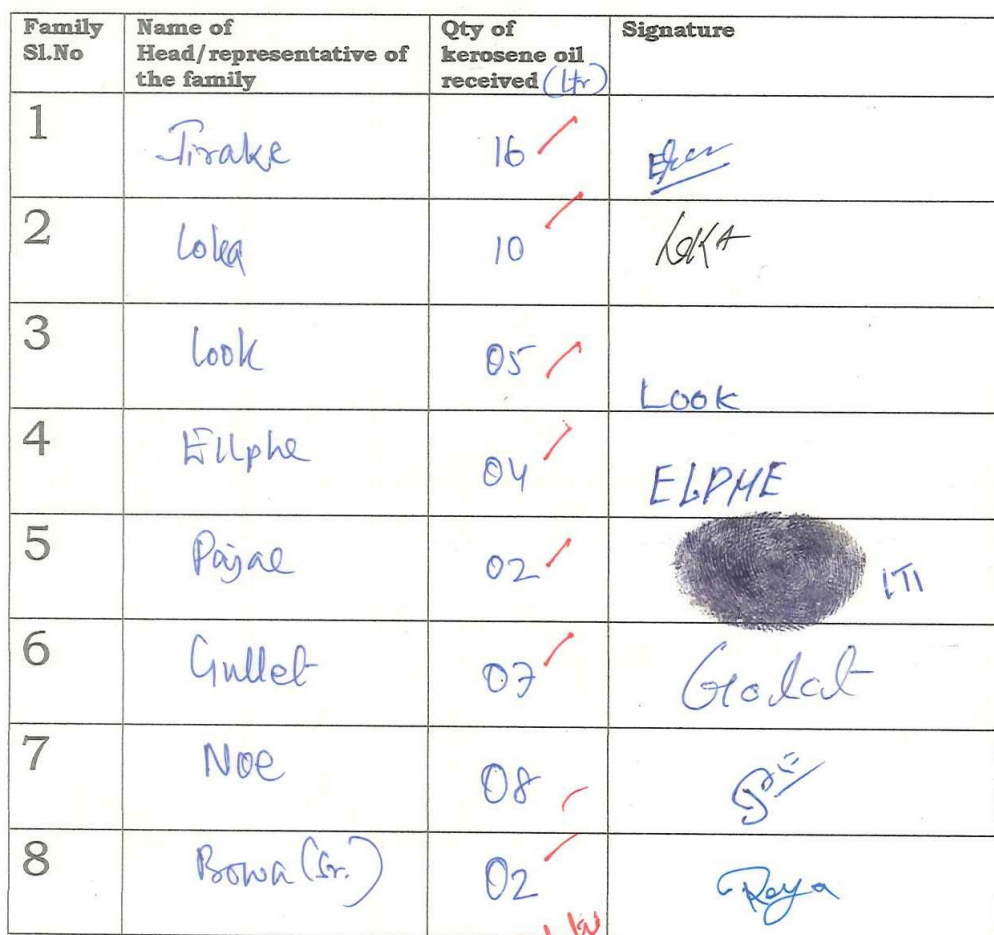 Family Sl.No Name of Head/representative of the family Qty of kerosene oil received (Ltr) Signature
1 Jirake 16
2 Loka 10 LOKA
3 Look 05 Look
4 Ellphe 04 ELPHE
5 Pajae 02 LTI
6 Gullet 07
7 Noe 08
8 Bowa (Sr.) 02 Reya